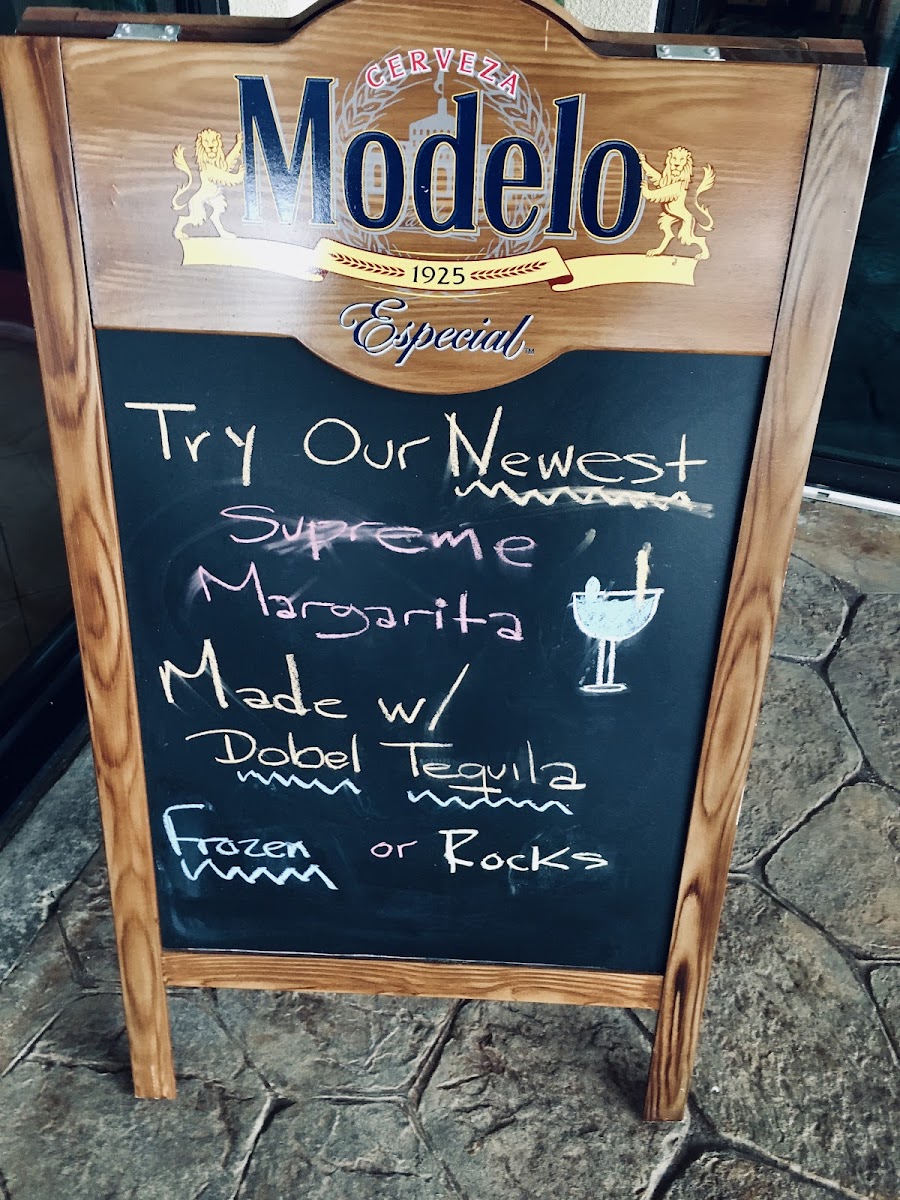 CERVEZA
Modelo
1925
Especial™
Try Our Newest
Supreme
Margarita
Made w/
Dobel Tequila
Frozen or Rocks